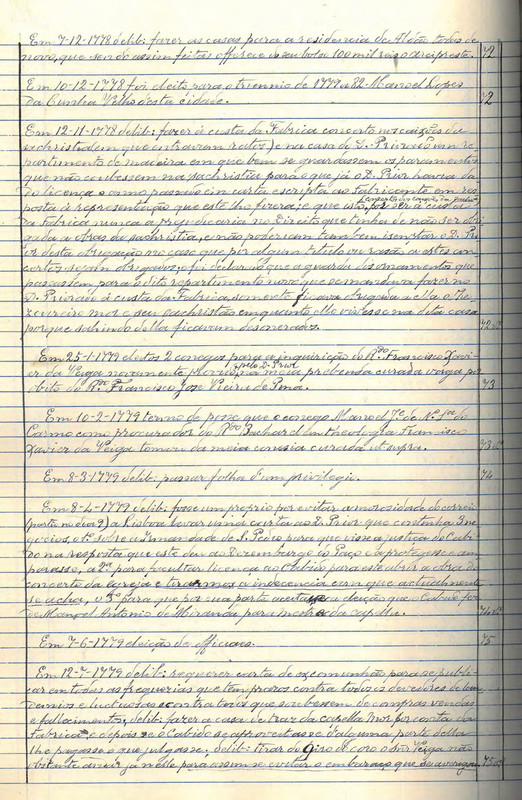 Em 7-12-1778 delib: fazer as casas para a residencia de Aldão todas de
novo, que sendo assim feitas offerece do seu bolso 100 mil reis de preste. 72
Em 10-12-1778 foi eleito para o triennio de 1779 a 82 Manoel Lopes
da Cunha Velho desta cidade. 72
Em 12-11-1778 delib: fazer á custa da Fabrica concerto nos caixões da
sachristia em que entravam ratos, e na casa do D. Priorado um re-
partimento de madeira em que bem se guardassem os paramentos
que não coubessem na sachristia para o que já o D. Prior havia da-
do licença e como passado em carta escripta ao Fabricante em res-
posta á representação que este lhe fizera, e que isto foi ser á custa
da Fabrica nunca a prejudicaria no Direito que tenha de não ser obri-
gada a obras da sachristia, e não poderiam tambem isentar o D. Pri-
or desta obrigação no caso que por algum titulo ou razão a estes con-
certos sejam obrigados, e foi declarado que a guarda dos ornamentos que
passassem para o dito repartimento novo que o mandava fazer no
D. Priorado á custa da Fabrica, somente ficava obrigada a ella o The-
zoureiro mor e seu sachristão enquanto elle vivesse na dita casa
porque sahindo della ficavam desonerados. 72 vº
Em 25-1-1779 eleitos 2 conegos para a inquirição do Rdo Francisco Xavi-
er da Veiga novamente provido pelo D. Prior na meia prebenda curada vaga por
obito do Rdo Francisco José Vieira de Pina. 73
Em 10-2-1779 termo de posse que o conego Manoel Je. de Na. Sra. do
Carmo com procurador do Rdo Bacharel em theologia Francisco
Xavier da Veiga tomou da meia conesia curada ut supra. 73 vº
Em 8-3-1779 delib: passar folha d'um privilegio. 74
Em 8-4-1779 delib: fosse um proprio por evitar a morosidade do correio
(parte no dia 9) a Lisboa levar uma carta ao D. Prior que continha 3 ne-
gocios, o 1º sobre a Irmandade de S. Pedro para que visse a justiça do Cabi-
do na resposta que este deu ao Dezembargo do Paço e a protegesse e am-
parasse, a 2ª para facultar licença ao Cabido para este abrir a obra do
concerto da egreja e tirarmos a indecencia em que actualmente
se acha, o 3º para que por sua parte aceitasse a eleição que o Cabido fez
de Manoel Antonio de Miranda para mestre da capella. 74 vº
Em 7-6-1779 eleição de officiaes. 75
Em 12-7-1779 delib: requerer carta de excomunhão para se publi-
car em todas as freguezias que tem prazos contra todos os devedores de lau-
demios e luctuosas e contra todos que soubessem de compras, vendas
e fallecimentos, delib: fazer a casa de traz da capella mor por conta da
Fabrica e depois se o Cabido se aproveitasse d'alguma parte della
lhe pagasse o que julgasse; delib: tirar do giro de coro o Snr Veiga não
obstante andar já nelle para assim se evitar o embaraço que se averigua. 75 vº